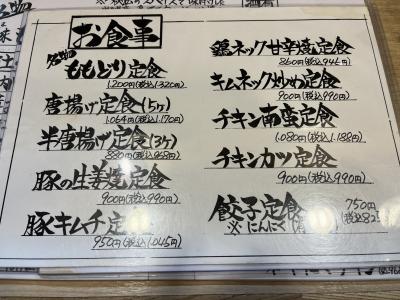 お食事
名物 ももどり定食
1.200円(税込1.320円)
唐揚げ定食(5ヶ)
1.064円(税込1.170円)
半唐揚げ定食(3ヶ)
880円(税込968円)
豚の生姜焼定食
900円(税込990円)
豚キムチ定食
950円(税込1.045円)
鶏ネック甘辛焼定食
860円(税込946円)
キムネック炒め定食
900円(税込990円)
チキン南蛮定食
1.080円(税込1.188円)
チキンカツ定食
900円(税込990円)
餃子定食
750円
(税込82
※にんにく